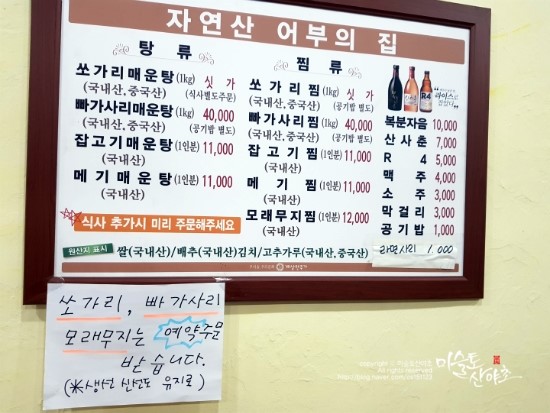 자연산 어부의 집
탕 류
쏘가리매운탕(1kg) 싯 가
(국내산,중국산) (식사별도주문)
빠가사리매운탕(1kg) 40,000
(국내산,중국산) (공기밥 별도)
잡고기매운탕(1인분) 11,000
(국내산)
메기매운탕(1인분) 11,000
(국내산)
찜 류
쏘가리찜(1kg) 싯 가
(국내산,중국산)
빠가사리찜(1kg) 40,000
(국내산,중국산) (공기밥 별도)
잡고기찜(1인분) 11,000
(국내산)
메 기 찜(1인분) 11,000
(국내산)
모래무지찜(1인분) 12,000
(국내산)
R4
복분자음 10,000
산사춘 7,000
R 4 5,000
맥 주 4,000
소 주 3,000
막걸리 3,000
공기밥 1,000
라면사리 1,000
식사 추가시 미리 주문해주세요
원산지 표시 쌀(국내산)/배추(국내산)김치/고추가루(국내산,중국산)
쏘가리, 빠가사리
모래무지는 예약주문
받습니다.
(※생선 신선도 유지로)
미술토
산야초